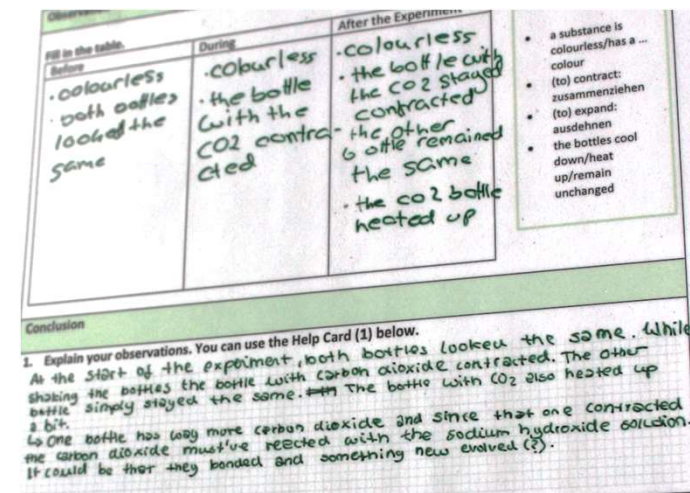 Observation
Fill in the table.
Before
During
After the Experiment
· colourless
· both bottles
looked the
same
· colourless
· the bottle
with the
CO2 contra-
cted
· colourless
· the bottle with
the CO2 stayed
contracted
- the other
bottle remained
the same
· the CO2 bottle
heated up
• a substance is
colourless/has a ...
colour
• (to) contract:
zusammenziehen
• (to) expand:
ausdehnen
• the bottles cool
down/heat
up/remain
unchanged
Conclusion
1. Explain your observations. You can use the Help Card (1) below.
At the start of the expoiment, both bottles looked the same. While
shaking the bottles the bottle with carbon dioxide contracted. The other
bottle simply stayed the same. The bottle with CO2 also heated up
a bit.
↳ One bottle has way more carbon dioxide and since that one contracted
the carbon dioxide must've reacted with the sodium hydroxide solution.
It could be that they bonded and something new evolved (?).